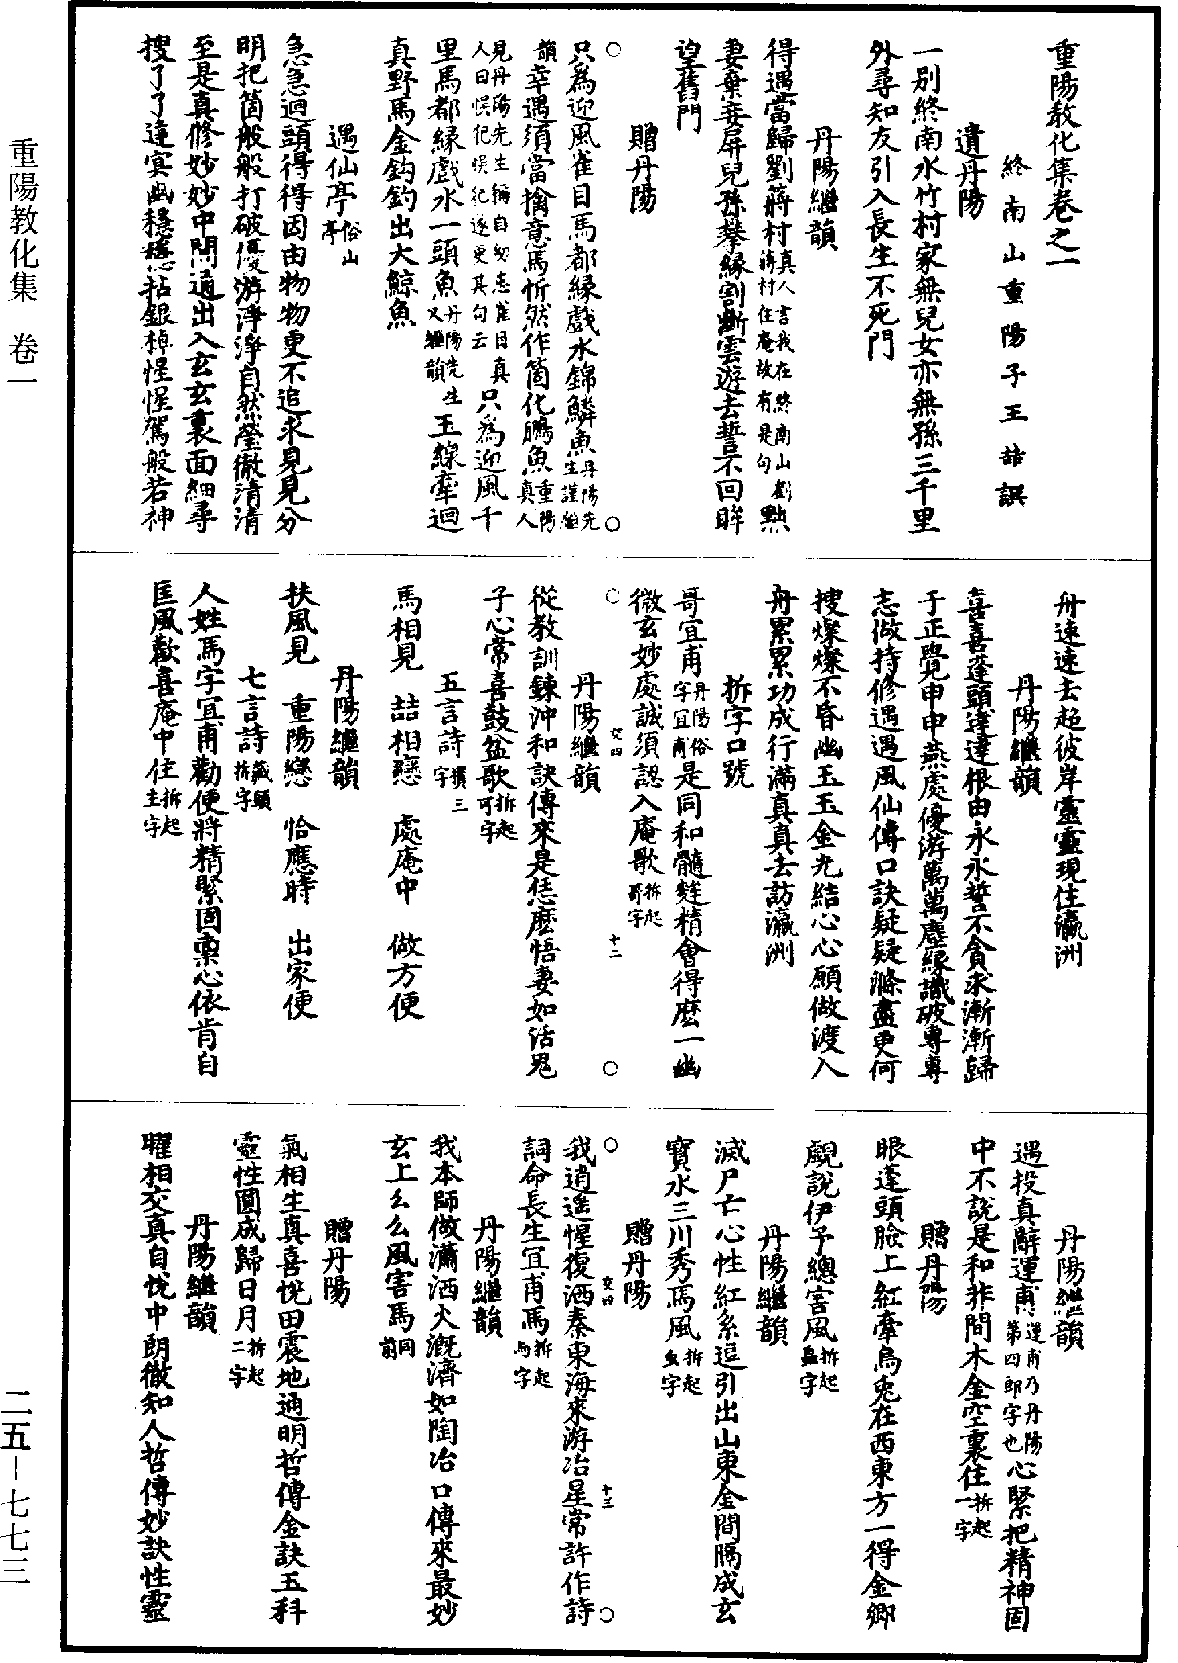 重陽教化集卷之一
終南山重陽子王嚞譔
遺丹陽
一別終南水竹村家無兒女亦無孫三千里
外尋知友引入長生不死門
丹陽繼韻
得遇當歸劉蔣村真人言我在終南山劉蔣村住庵故有是句㸃
妻棄妾屏兒孫攀緣割斷雲遊去誓不回眸
望舊門
贈丹陽
只為迎風雀目馬都緣戲水錦鱗魚丹陽先生謹繼
韻幸遇須當擒意馬忻然作箇化鵬魚重陽真人
見丹陽先生稱自幼患雀目真人曰悞犯悞犯遂更其句云只為迎風千
里馬都緣戲水一頭魚丹陽先生又繼韻玉線牽迴
真野馬金鈎釣出大鯨魚
遇仙亭俗山亭
急急迴頭得得因由物物更不追求見見分
明把箇般般打破優游淨淨自然瑩徹清清
至是真修妙妙中間通出入玄玄裏面細尋
搜了了達㝠幽穩穩拈銀棹惺惺駕般若神
舟速速去超彼岸靈靈現住瀛洲
丹陽繼韻
喜喜蓬頭達達根由永永誓不貪求漸漸歸
于正覺申申燕處優游萬萬塵緣識破專專
志做持修遇遇風仙傳口訣疑疑滌盡更何
搜燦燦不昏幽玉玉金光結心心願做渡人
舟累累功成行滿真真去訪瀛洲
拆字口號
哥宜甫丹陽俗字宜甫是同和髓麩精會得麽一幽
微玄妙處誠須認入庵歌拆起哥字
丹陽繼韻
從教訓鍊沖和訣傳來是恁麽悟妻如活鬼
子心常喜鼓盆歌拆起可字
五言詩攢三字
馬相見　喆相戀　處庵中　做方便
丹陽繼韻
扶風見　重陽戀　恰應時　出家便
七言詩藏頭拆字
人姓馬字宜甫勸便將精緊固槖心依肯自
匡風歡喜庵中住拆起主字
丹陽繼韻
遇投真辭運甫運甫乃丹陽第四郎字也心緊把精神固
中不說是和非間木金空裏住拆起一字
贈丹陽
眼蓬頭臉上紅牽烏兎在西東方一得金卿
覷說伊予總害風拆起䖝字
丹陽繼韻
滅尸亡心性紅系逗引出山東金間隔成玄
寳水三川秀馬風拆起虫字
贈丹陽
我逍遥惺復洒秦東海來游冶星常許作詩
詞命長生宜甫馬拆起馬字
丹陽繼韻
我本師做瀟洒火溉濟如陶冶口傳來最妙
玄上么么風害馬同前
贈丹陽
氣相生真喜悅田震地通明哲傳金訣五科
靈性圓成歸日月拆起二字
丹陽繼韻
曜相交真自悅中朗徹知人哲傳妙訣性靈
交四
十二
交四
十三
重陽教化集　卷一
二五－七七三